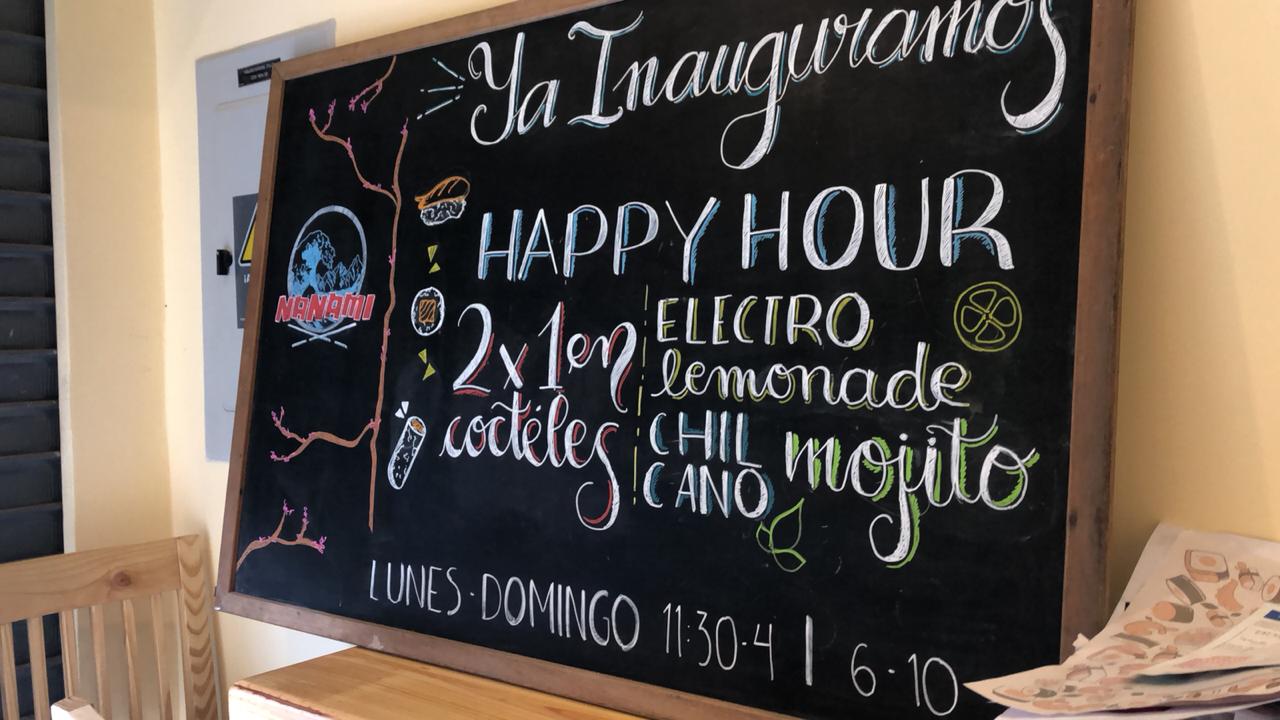 Ya Inauguramos
NANAMI
HAPPY HOUR
2x1 en
cocteles
ELECTRO
lemonade
CHIL
CANO
mojito
LUNES-DOMINGO 11:30-4 | 6-10